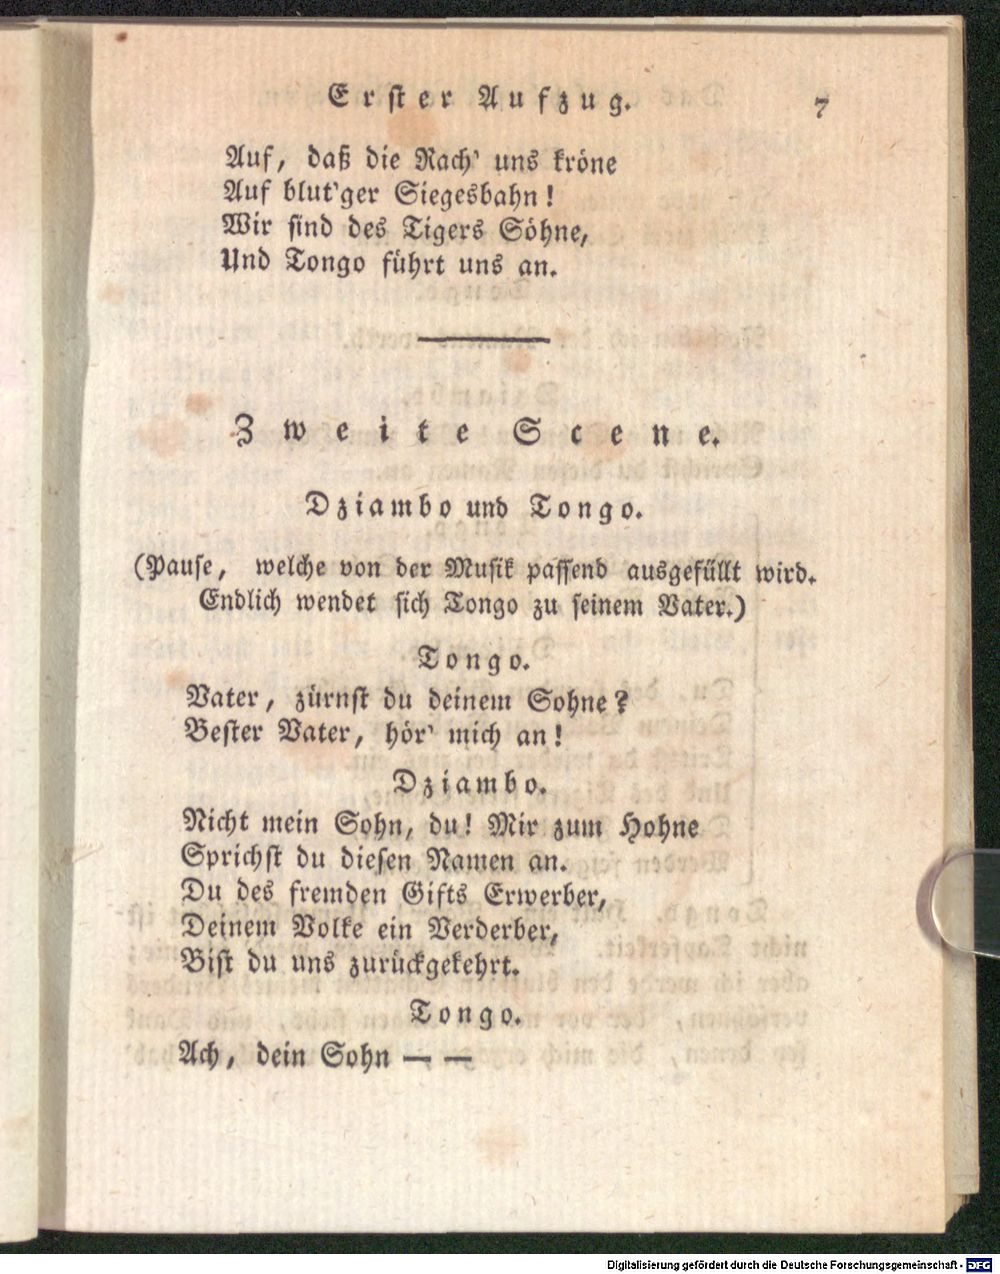 Erster Aufzug. 7
Auf, daß die Rach' uns kröne
Auf blut'ger Siegesbahn!
Wir sind des Tigers Söhne,
Und Tongo führt uns an.
Zweite Scene.
Dziambo und Tongo.
(Pause, welche von der Musik passend ausgefüllt wird.
Endlich wendet sich Tongo zu seinem Vater.)
Tongo.
Vater, zürnst du deinem Sohne?
Bester Vater, hör' mich an!
Dziambo.
Nicht mein Sohn, du! Mir zum Hohne
Sprichst du diesen Namen an.
Du des fremden Gifts Erwerber,
Deinem Volke ein Verderber,
Bist du uns zurückgekehrt.
Tongo.
Ach, dein Sohn — —
Digitalisierung gefördert durch die Deutsche Forschungsgemeinschaft - DFG